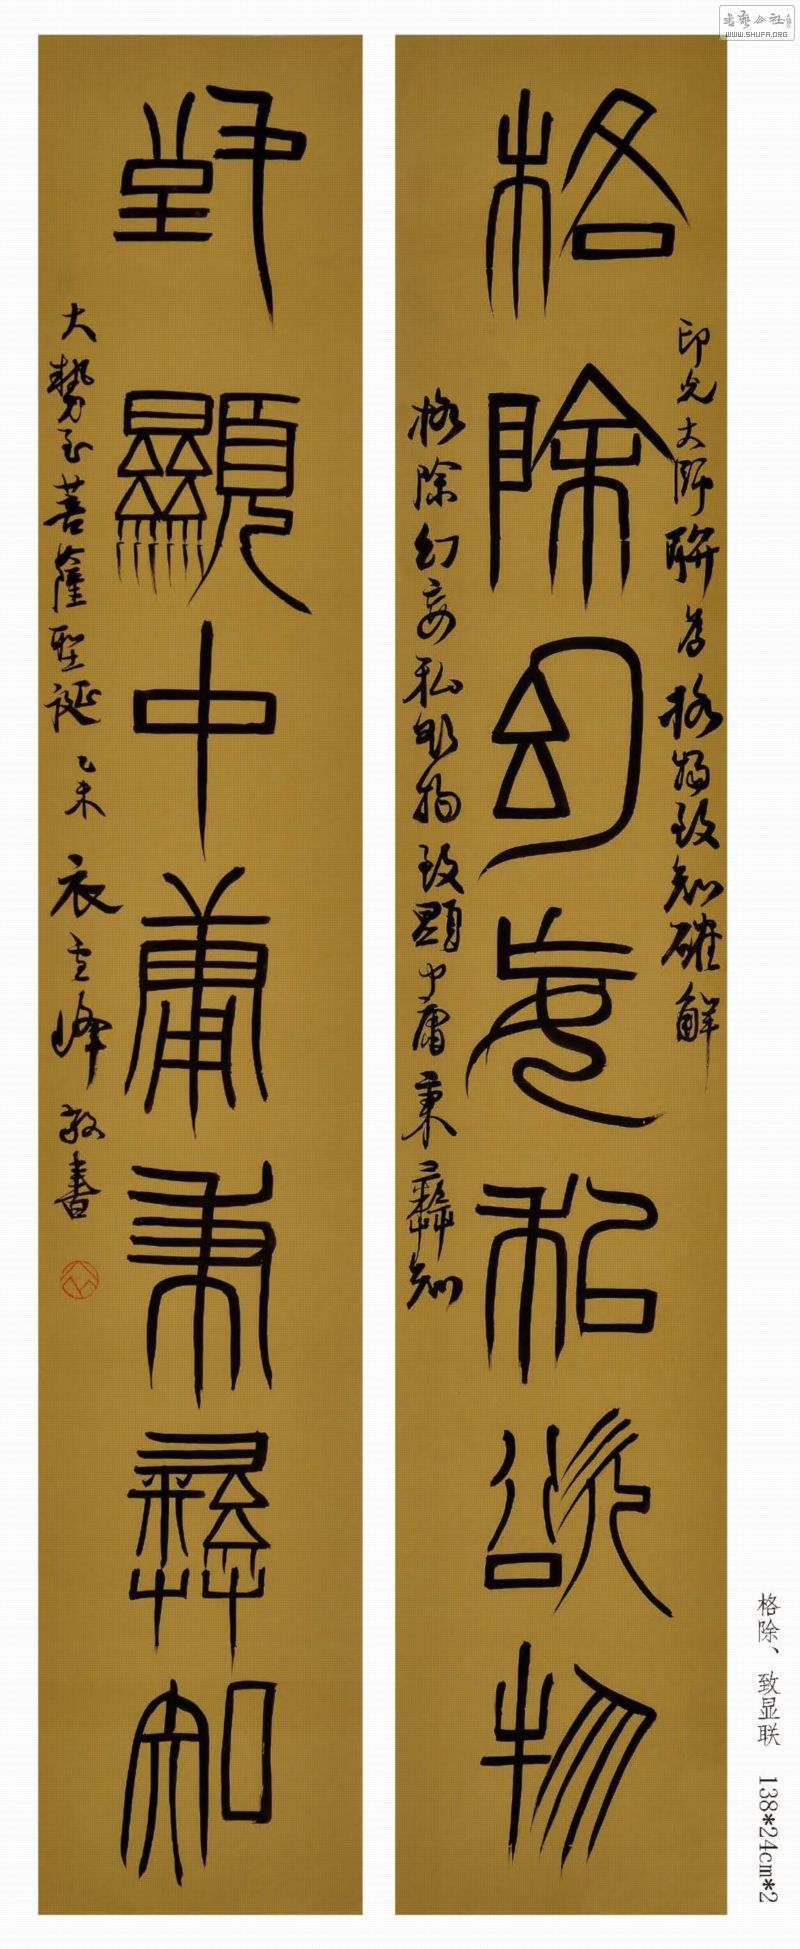 書藝公社
WWW.SHUFA.ORG
印光大師聯為格物致知確解
格除幻妄私欲物
格除幻妄私欲物致顯中庸秉彝知
致顯中庸秉彝知
大勢至菩薩聖誕乙未衣雪峰敬書
格除、致显联 138*24cm*2